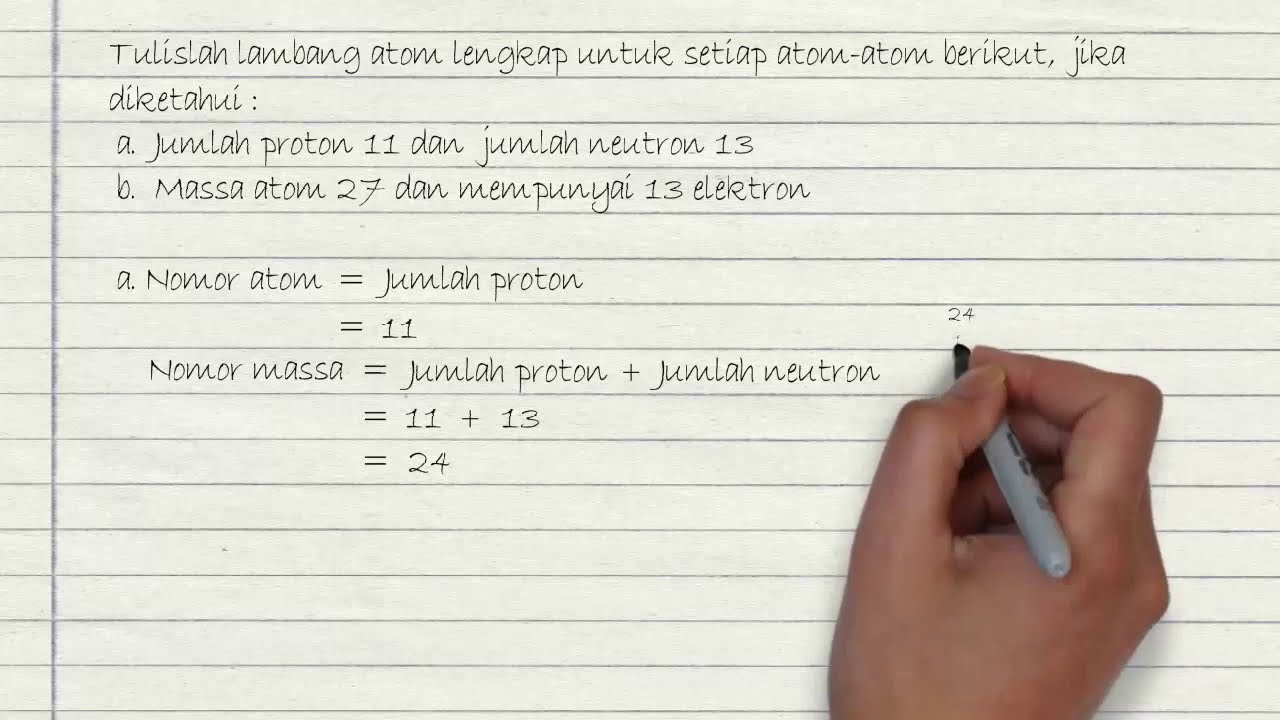 Tulislah lambang atom lengkap untuk setiap atom-atom berikut, jika
diketahui :
a. Jumlah proton 11 dan jumlah neutron 13
b. Massa atom 27 dan mempunyai 13 elektron
a. Nomor atom = Jumlah proton
= 11
24
Nomor massa = Jumlah proton + Jumlah neutron
= 11 + 13
= 24